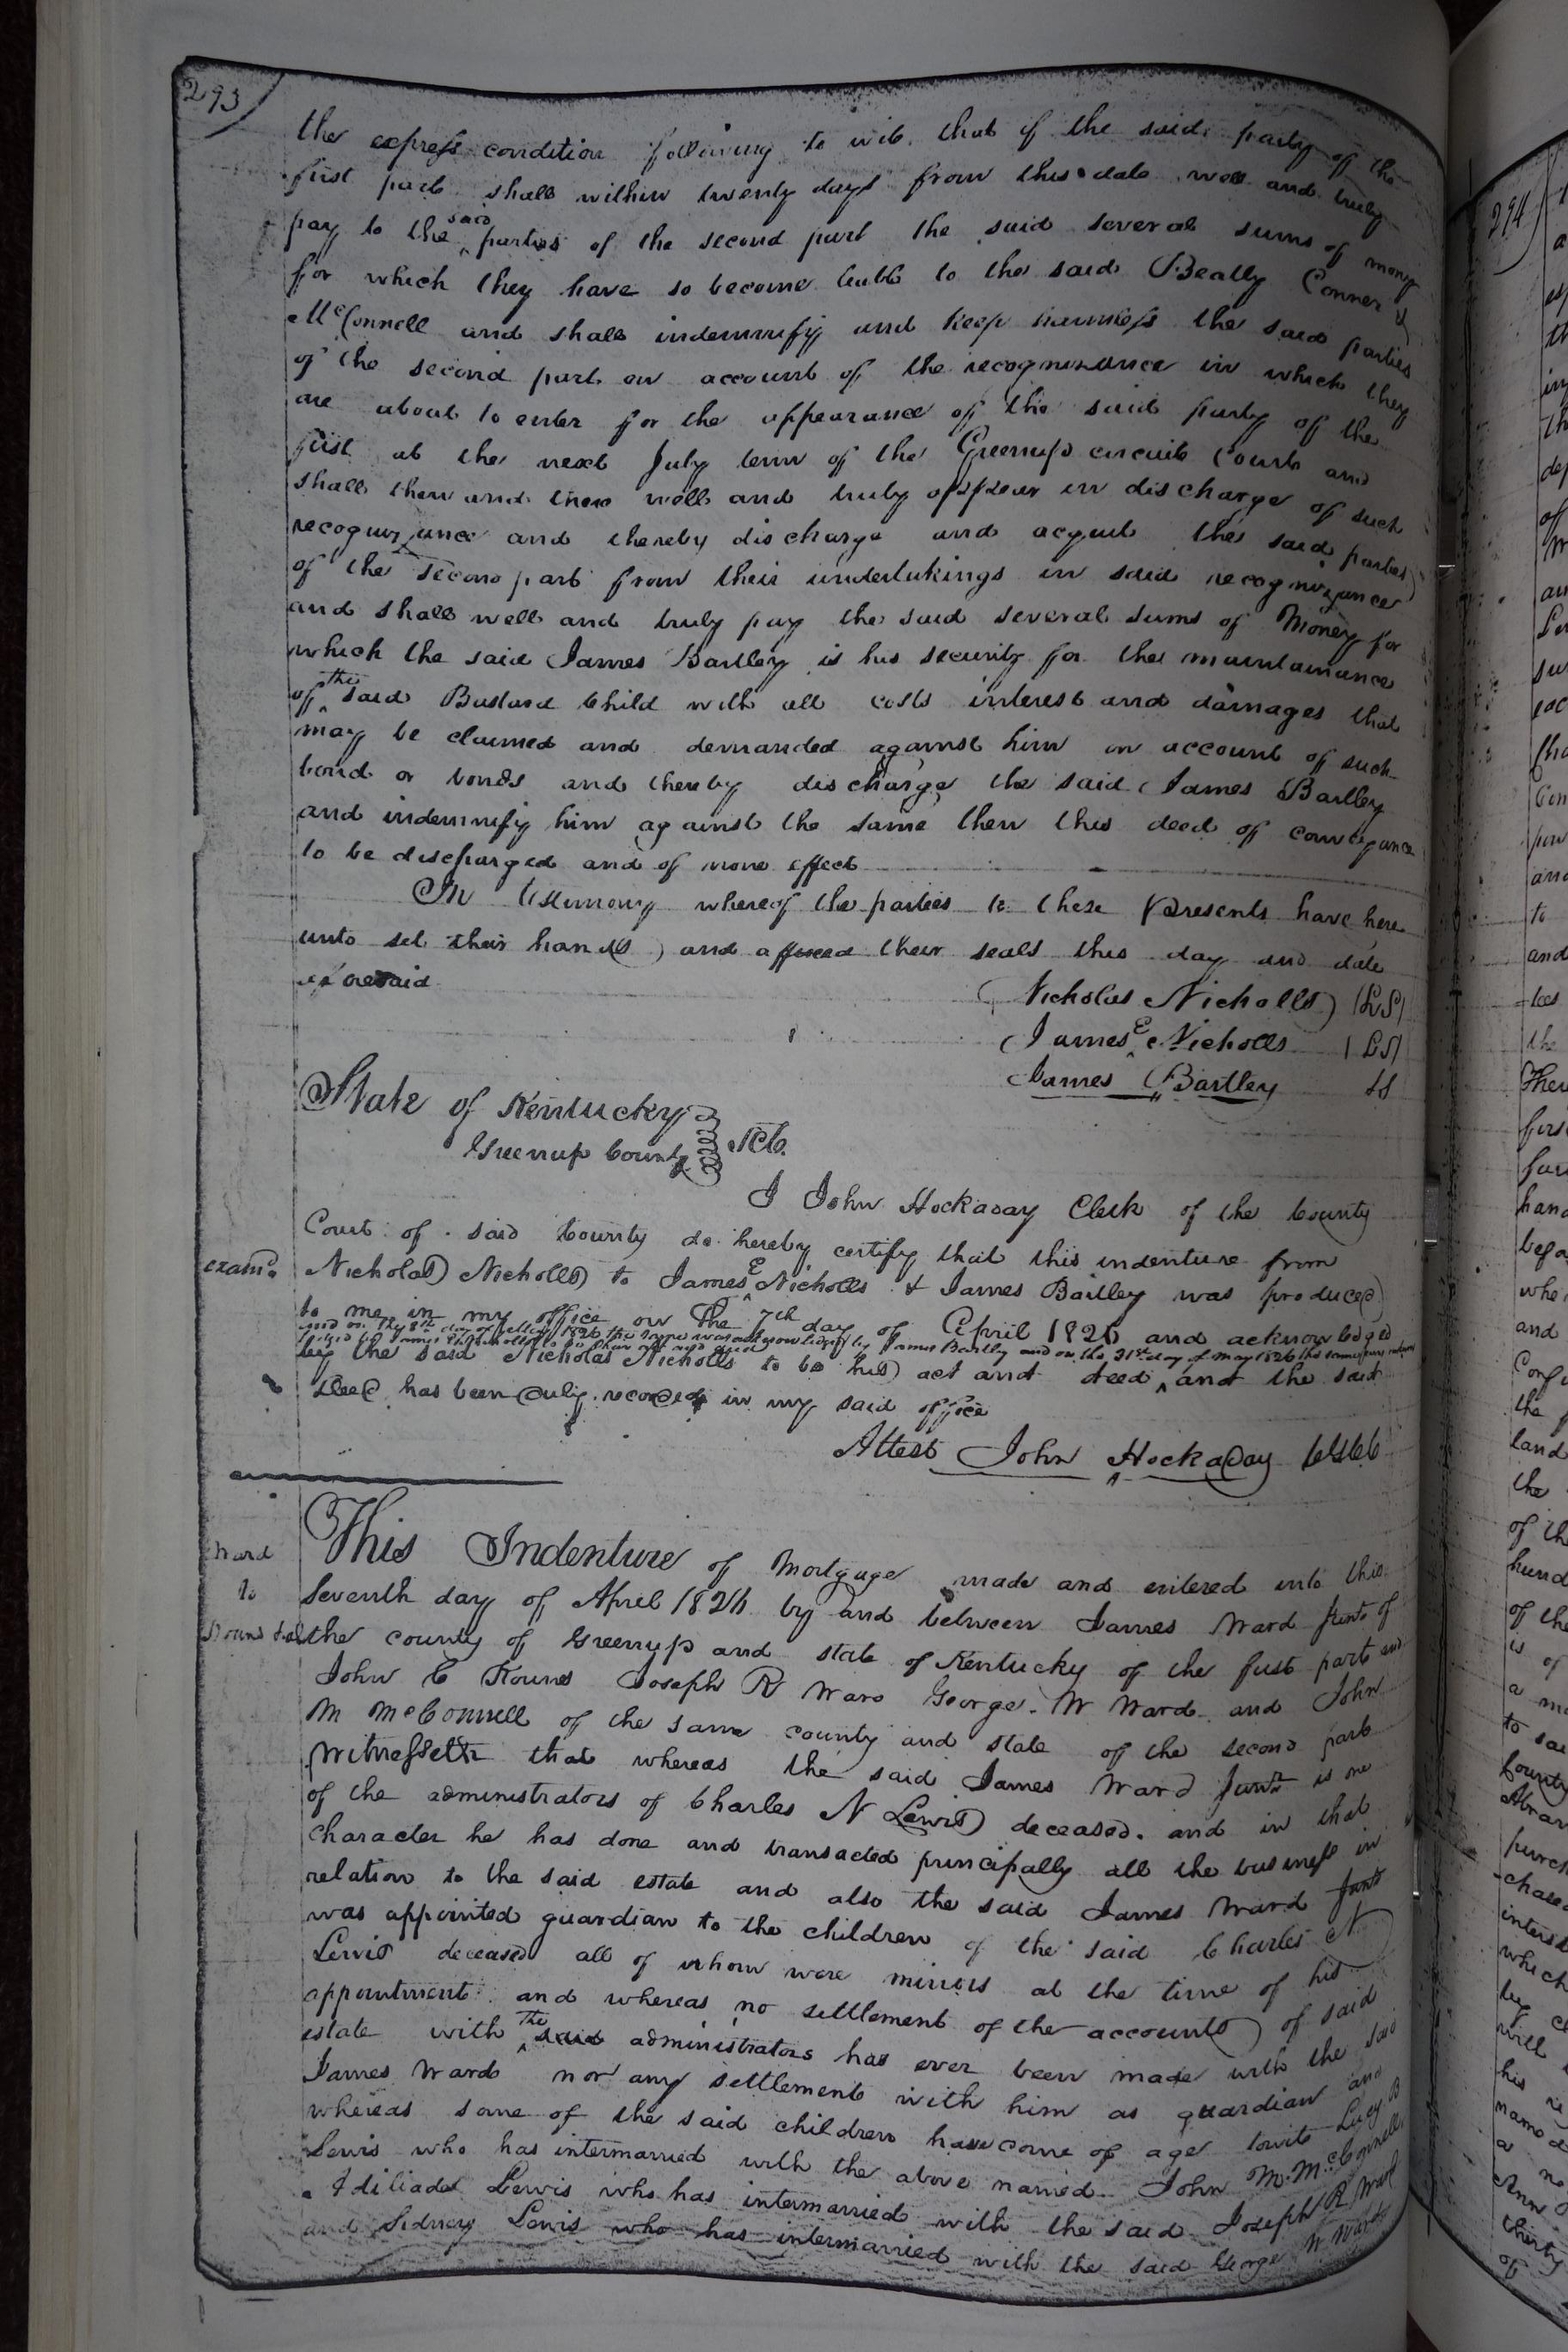 293
the express condition following to wit. that if the said party of the
first part shall within twenty days from this date well and truly
pay to the said parties of the second part the said several sums of money
for which they have so become liable to the said Beatty Conner &
McConnell and shall indemnify and keep harmless the said parties
of the second part on account of the recognizance in which they
are about to enter for the appearance of the said party of the
first at the next July term of the Greenup circuit Court and
shall then and there well and truly appear in discharge of such
recognizance and thereby discharge and acquit the said parties
of the second part from their undertakings in said recognizance
and shall well and truly pay the said several sums of Money for
which the said James Bartley is his security for the maintainance
of the said Bastard Child with all costs interest and damages that
may be claimed and demanded against him on account of such
bond or bonds and thereby discharge the said James Bartley
and indemnify him against the same then this deed of conveyance
to be discharged and of none effect
In testimony whereof the parties to these presents have here
unto set their hands and affixed their seals this day and date
aforesaid
Nicholas Nicholls (LS)
James E Nicholls (LS)
James Bartley LS
State of Kentucky
Greenup County Sct.
I John Hockaday Clerk of the County
Court of said County do hereby certify that this indenture from
examd. Nicholas Nicholls to James E Nicholls & James Bartley was produced
to me in my office on the 7th day of April 1826 and acknowledged
and on the 8th day of 1826 the same was acknowledged by James Bartley and on the 31st day of May 1826 the same was
by James E Nicholls to be their act and deed
by the said Nicholas Nicholls to be his act and deed and the said
deed has been duly recorded in my said office
Attest John Hockaday
Ward
to
This Indenture of Mortgage made and entered into this
seventh day of April 1826 by and between James Ward Junr of
the county of Greenup and state of Kentucky of the first part and
John C Kouns Joseph R Ward George W Ward and John
M McConnell of the same county and state of the second part
Witnesseth that whereas the said James Ward Junr is one
of the administrators of Charles N Lewis deceased. and in that
character he has done and transacted principally all the business in
relation to the said estate and also the said James Ward Junr
was appointed guardian to the children of the said Charles N
Lewis deceased all of whom were minors at the time of his
appointment and whereas no settlement of the accounts of said
estate with the said administrators has ever been made with the said
James Ward nor any settlement with him as guardian and
whereas some of the said children have come of age towit Lucy B
Lewis who has intermarried with the above named John M. McConnell
Lewis who has intermarried with the said Joseph R Ward
and Sidney Lewis who has intermarried with the said George W Ward
294